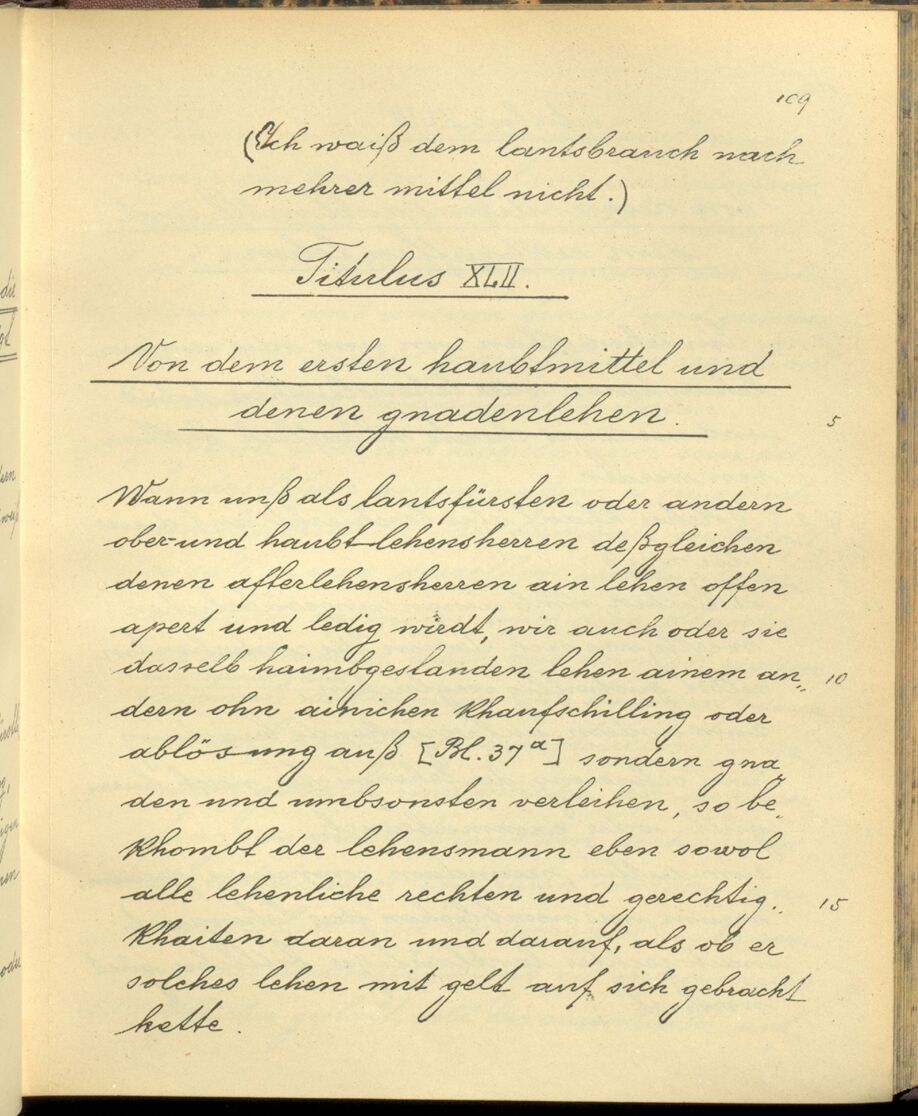 109
(Ich waiß dem lantsbrauch nach
mehrer mittel nicht.)
Titulus XLII.
Von dem ersten haubtmittel und
denen gnadenlehen.
5
Wann unß als lantsfürsten oder andern
ober- und haubt-lehensherren deßgleichen
denen afterlehensherren ain lehen offen
apert und ledig wirdt, wir auch oder sie
dasselb haimbgestanden lehen ainem an„
10
dern ohn ainichen khaufschilling oder
ablösung auß [Bl. 37a] sondern gna„
den und umbsonsten verleihen, so be„
khombt der lehensmann eben sowol
alle lehenliche rechten und gerechtig„
15
khaiten daran und darauf, als ob er
solches lehen mit gelt auf sich gebracht
hette.